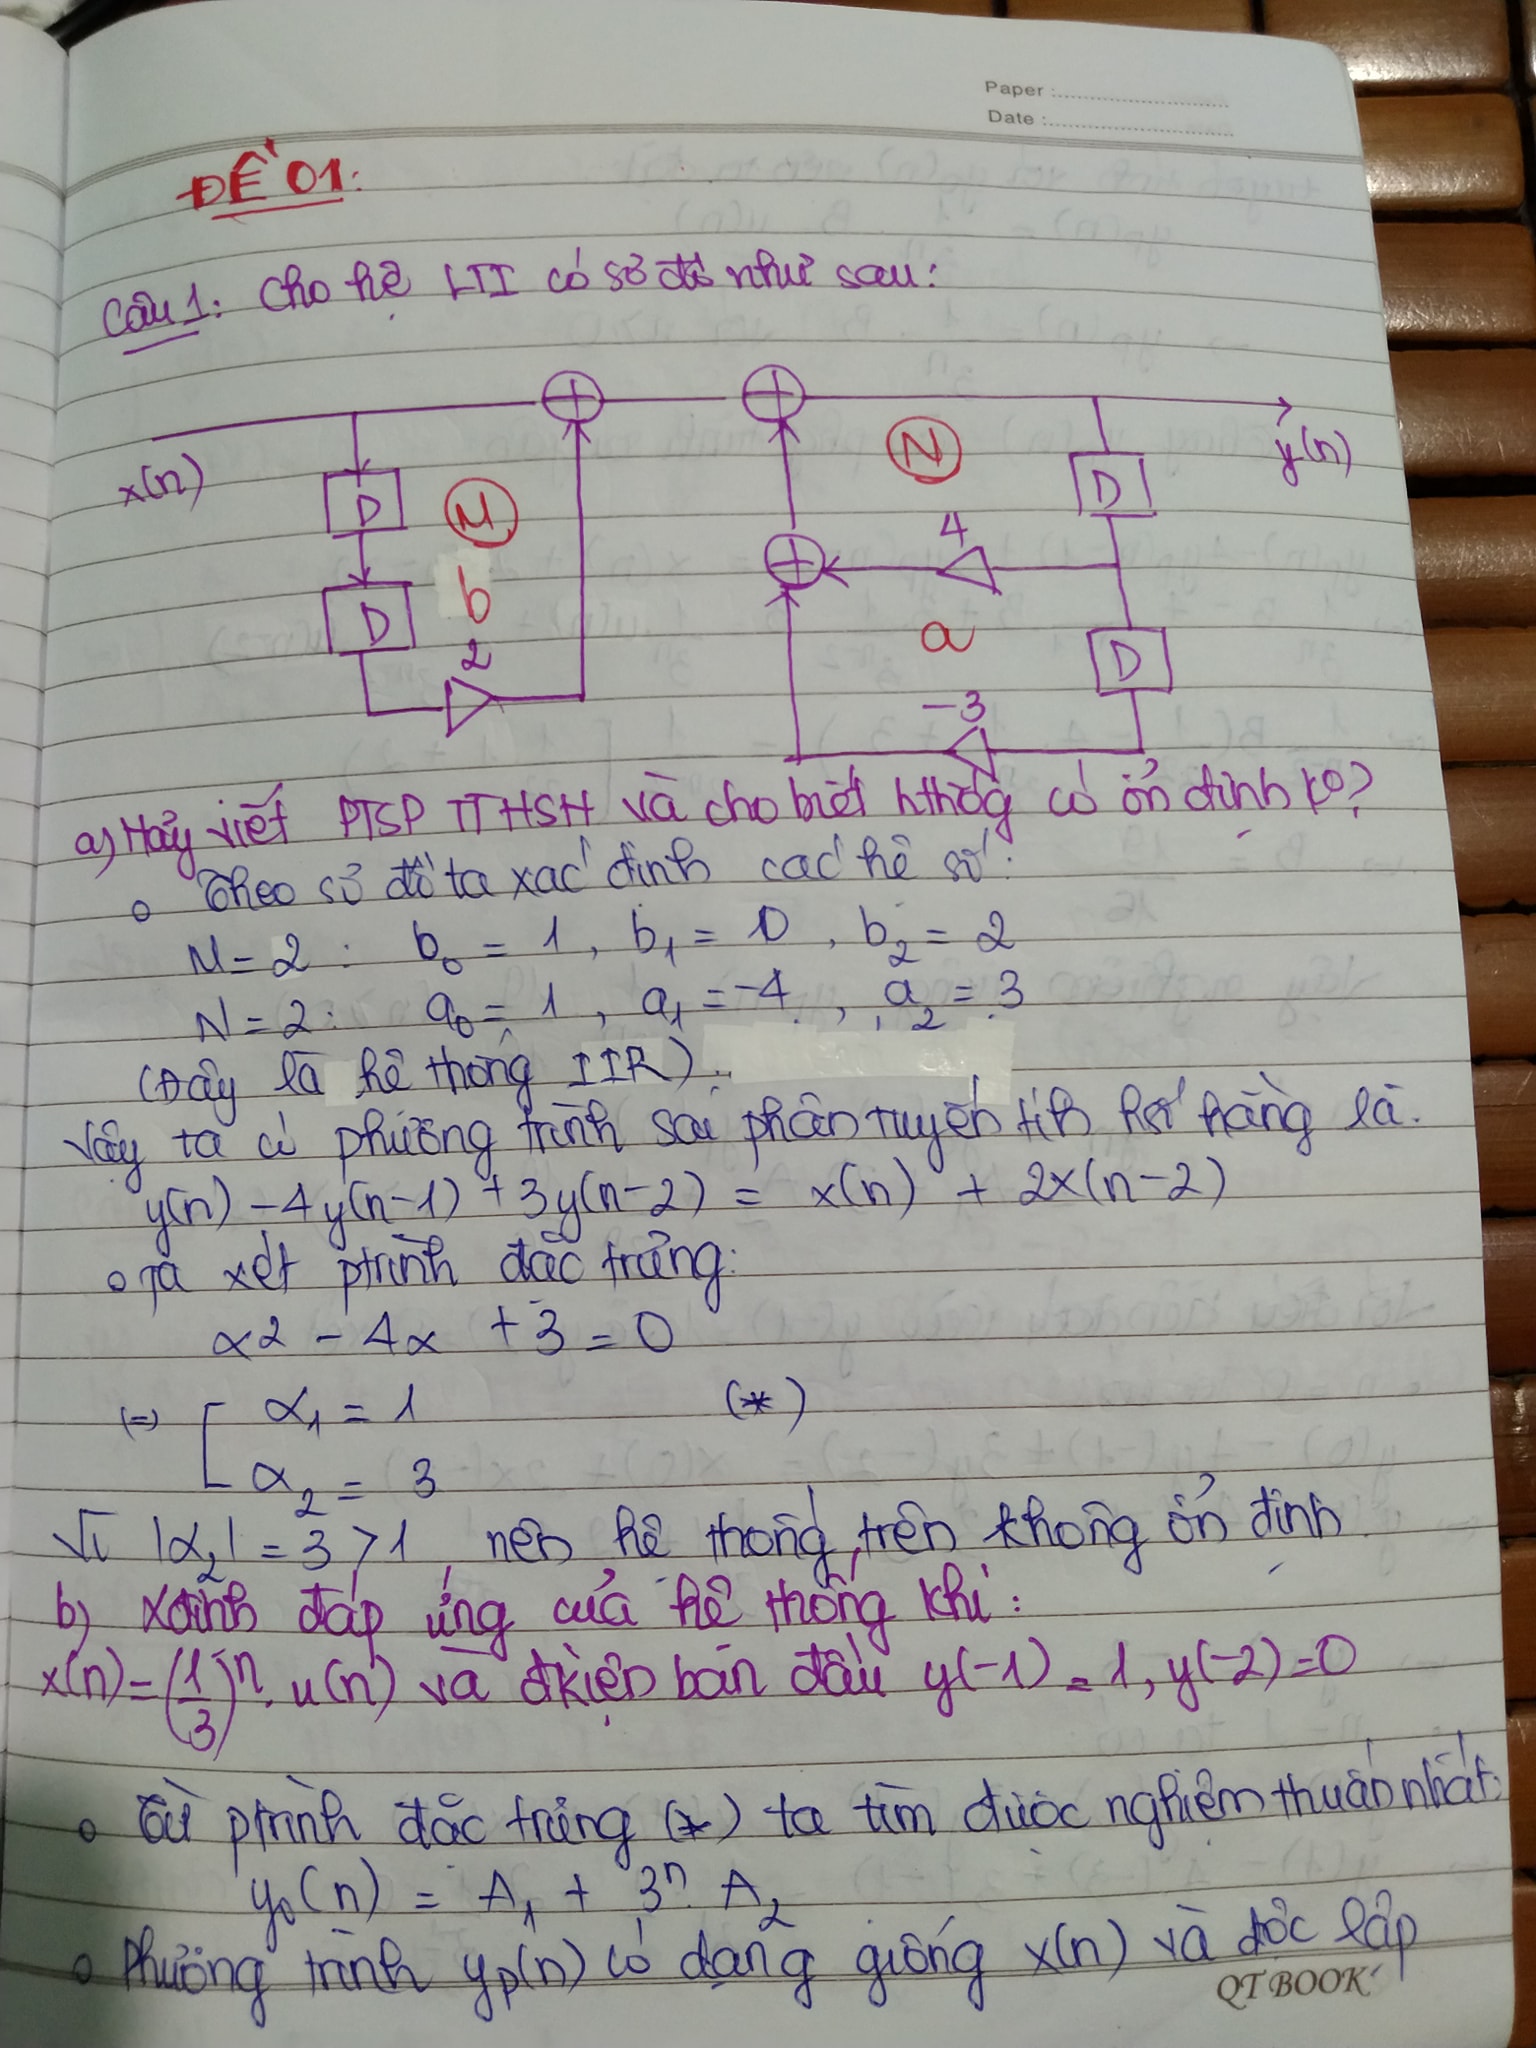 Paper :
Date :
ĐỀ 01:
Câu 1: Cho hệ LTI có sơ đồ như sau:
x(n)
D
M
N
D
y(n)
4
D
b
2
a
D
-3
a) Hãy viết PTSP TTHSH và cho biết hthốg có ổn định ko?
Theo sơ đồ ta xác định các hệ số:
M = 2 : b₀ = 1 , b₁ = 0 , b₂ = 2
N = 2 : a₀ = 1 , a₁ = -4 , a₂ = 3
(Đây là hệ thống IIR).
Vậy ta có phương trình sai phân tuyến tính hệ hằng là.
y(n) - 4y(n-1) + 3y(n-2) = x(n) + 2x(n-2)
Ta xét ptrình đặc trưng:
α2 - 4α + 3 = 0
(=) [ α₁ = 1 (*)
α₂ = 3
Vì |α₂| = 3 > 1 nên hệ thống trên không ổn định
b) Xđịnh đáp ứng của hệ thống khi:
x(n) = (1/3)ⁿ. u(n) và đkiện ban đầu y(-1) = 1, y(-2) = 0
Từ ptrình đặc trưng (*) ta tìm được nghiệm thuần nhất:
y₀(n) = A₁ + 3ⁿ. A₂
Phương trình yp(n) có dạng giống x(n) và độc lập
QT BOOK